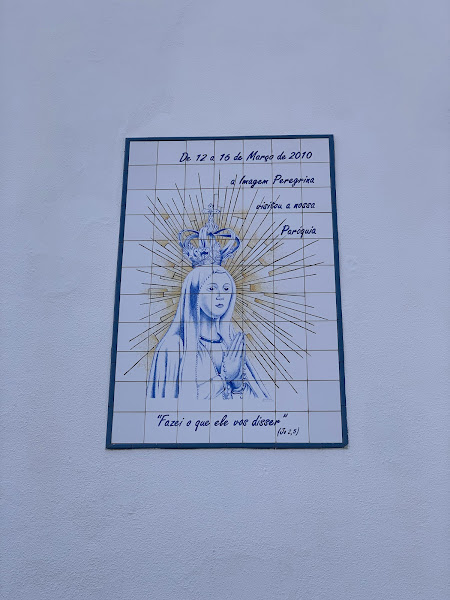 De 12 a 16 de Março de 2010
a Imagem Peregrina
visitou a nossa
Paróquia
"Fazei o que ele vos disser"
(Jo 2,5)